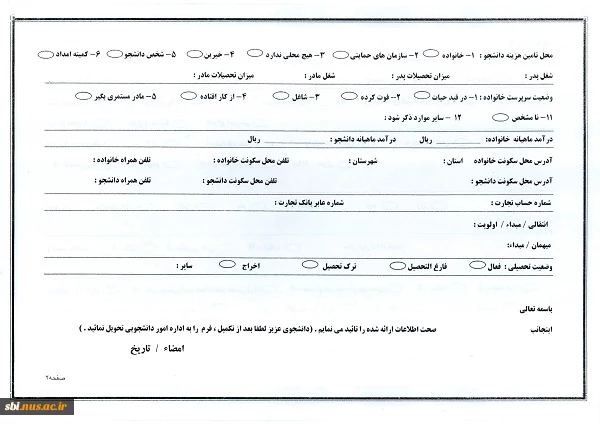 محل تامین هزینه دانشجو : ۱- خانواده ۲- سازمان های حمایتی ۳- هیچ محلی ندارد ۴- خیرین ۵- شخص دانشجو ۶- کمیته امداد
شغل پدر : میزان تحصیلات پدر : شغل مادر : میزان تحصیلات مادر :
وضعیت سرپرست خانواده : ۱- در قید حیات ۲- فوت کرده ۳- شاغل ۴- از کار افتاده ۵- مادر مستمری بگیر
۱۱- نا مشخص ۱۲ - سایر موارد ذکر شود :
درآمد ماهیانه خانواده: ریال درآمد ماهیانه دانشجو : ریال
آدرس محل سکونت خانواده استان : شهرستان : تلفن محل سکونت خانواده : تلفن همراه خانواده :
آدرس محل سکونت دانشجو : تلفن محل سکونت دانشجو : تلفن همراه دانشجو :
شماره حساب تجارت : شماره عابر بانک تجارت :
انتقالی / مبداء / اولویت :
میهمان / مبداء:
وضعیت تحصیلی : فعال فارغ التحصیل ترک تحصیل اخراج سایر :
باسمه تعالی
اینجانب صحت اطلاعات ارائه شده را تائید می نمایم . (دانشجوی عزیز لطفا بعد از تکمیل ، فرم را به اداره امور دانشجویی تحویل نمائید . )
امضاء / تاریخ
صفحه۲
sbi.nus.ac.ir